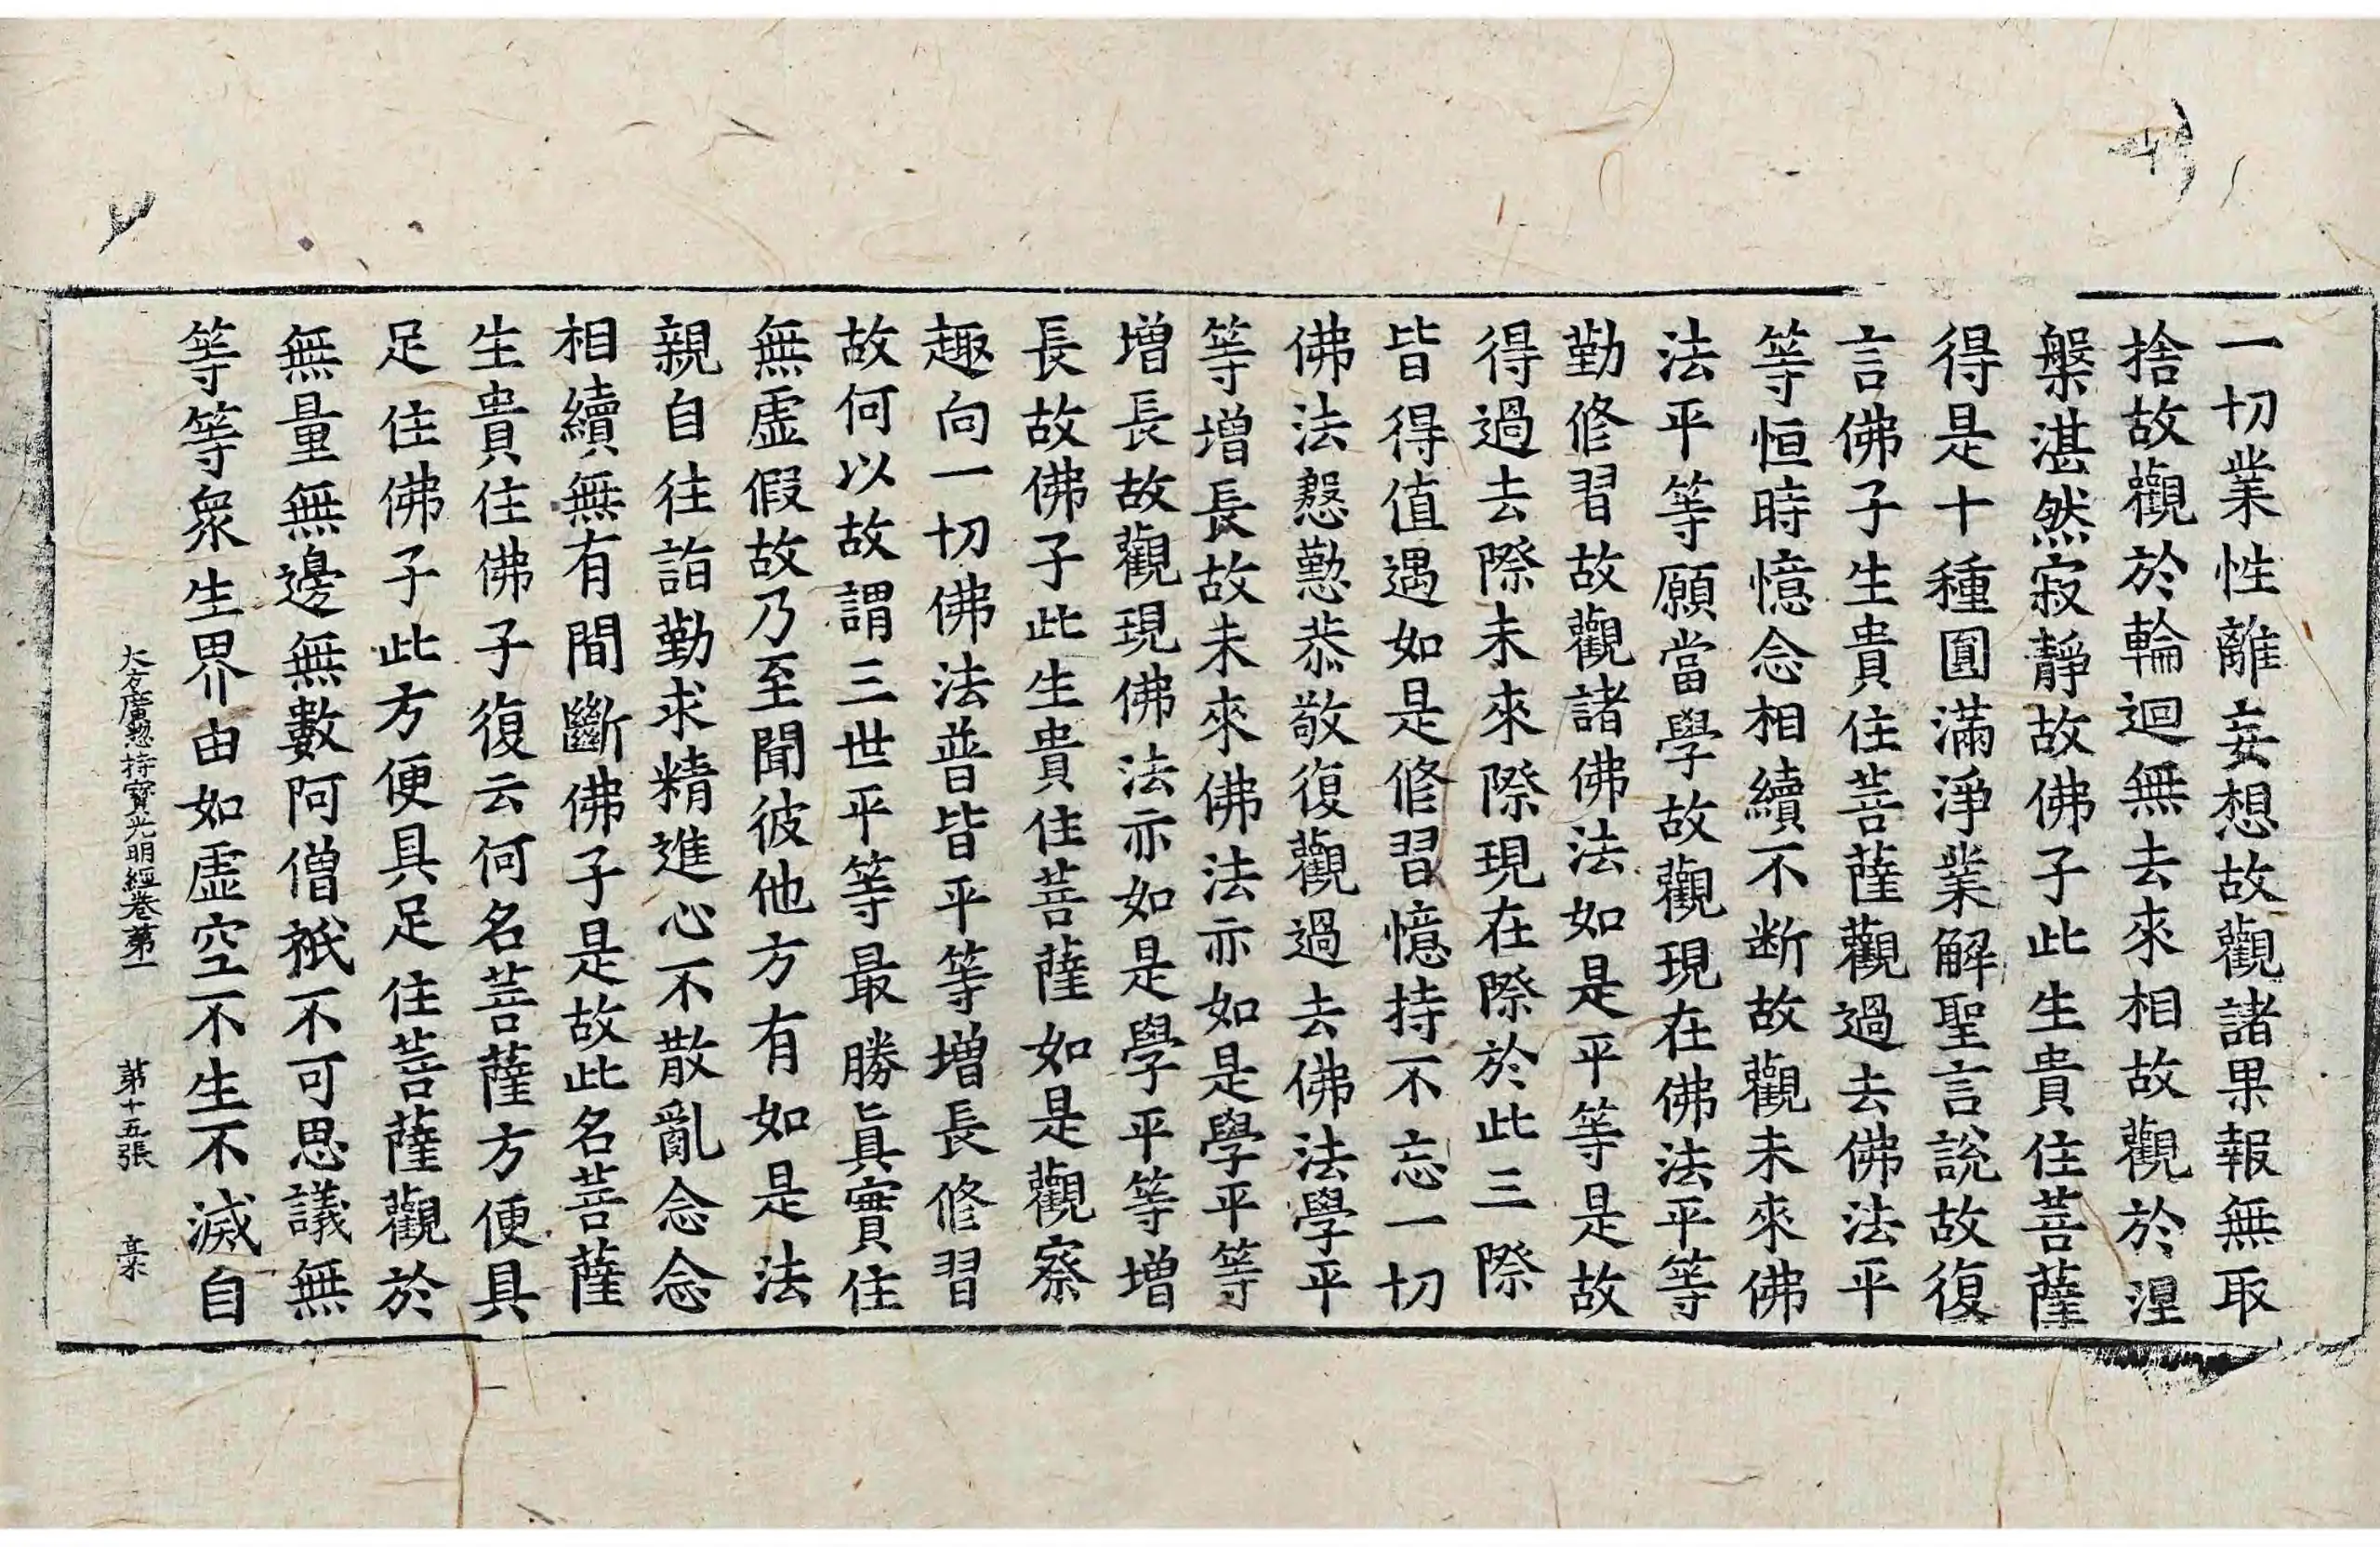 一切業性離妄想故觀諸果報無取
捨故觀於輪迴無去來相故觀於涅
槃湛然寂靜故佛子此生貴住菩薩
得是十種圓滿淨業解聖言說故復
言佛子生貴住菩薩觀過去佛法平
等恒時憶念相續不断故觀未來佛
法平等願當學故觀現在佛法平等
勤修習故觀諸佛法如是平等是故
得過去際未來際現在際於此三際
皆得值遇如是修習憶持不忘一切
佛法慇懃恭敬復觀過去佛法學平
等增長故未來佛法亦如是學平等
增長故觀現佛法亦如是學平等增
長故佛子此生貴住菩薩如是觀察
趣向一切佛法普皆平等增長修習
故何以故謂三世平等最勝眞實住
無虛假故乃至聞彼他方有如是法
親自往詣勤求精進心不散亂念念
相續無有間斷佛子是故此名菩薩
生貴住佛子復云何名菩薩方便具
足住佛子此方便具足住菩薩觀於
無量無邊無數阿僧祇不可思議無
等等衆生界由如虛空不生不滅自
大方廣惣持寶光明經卷第一 第十五張 槀